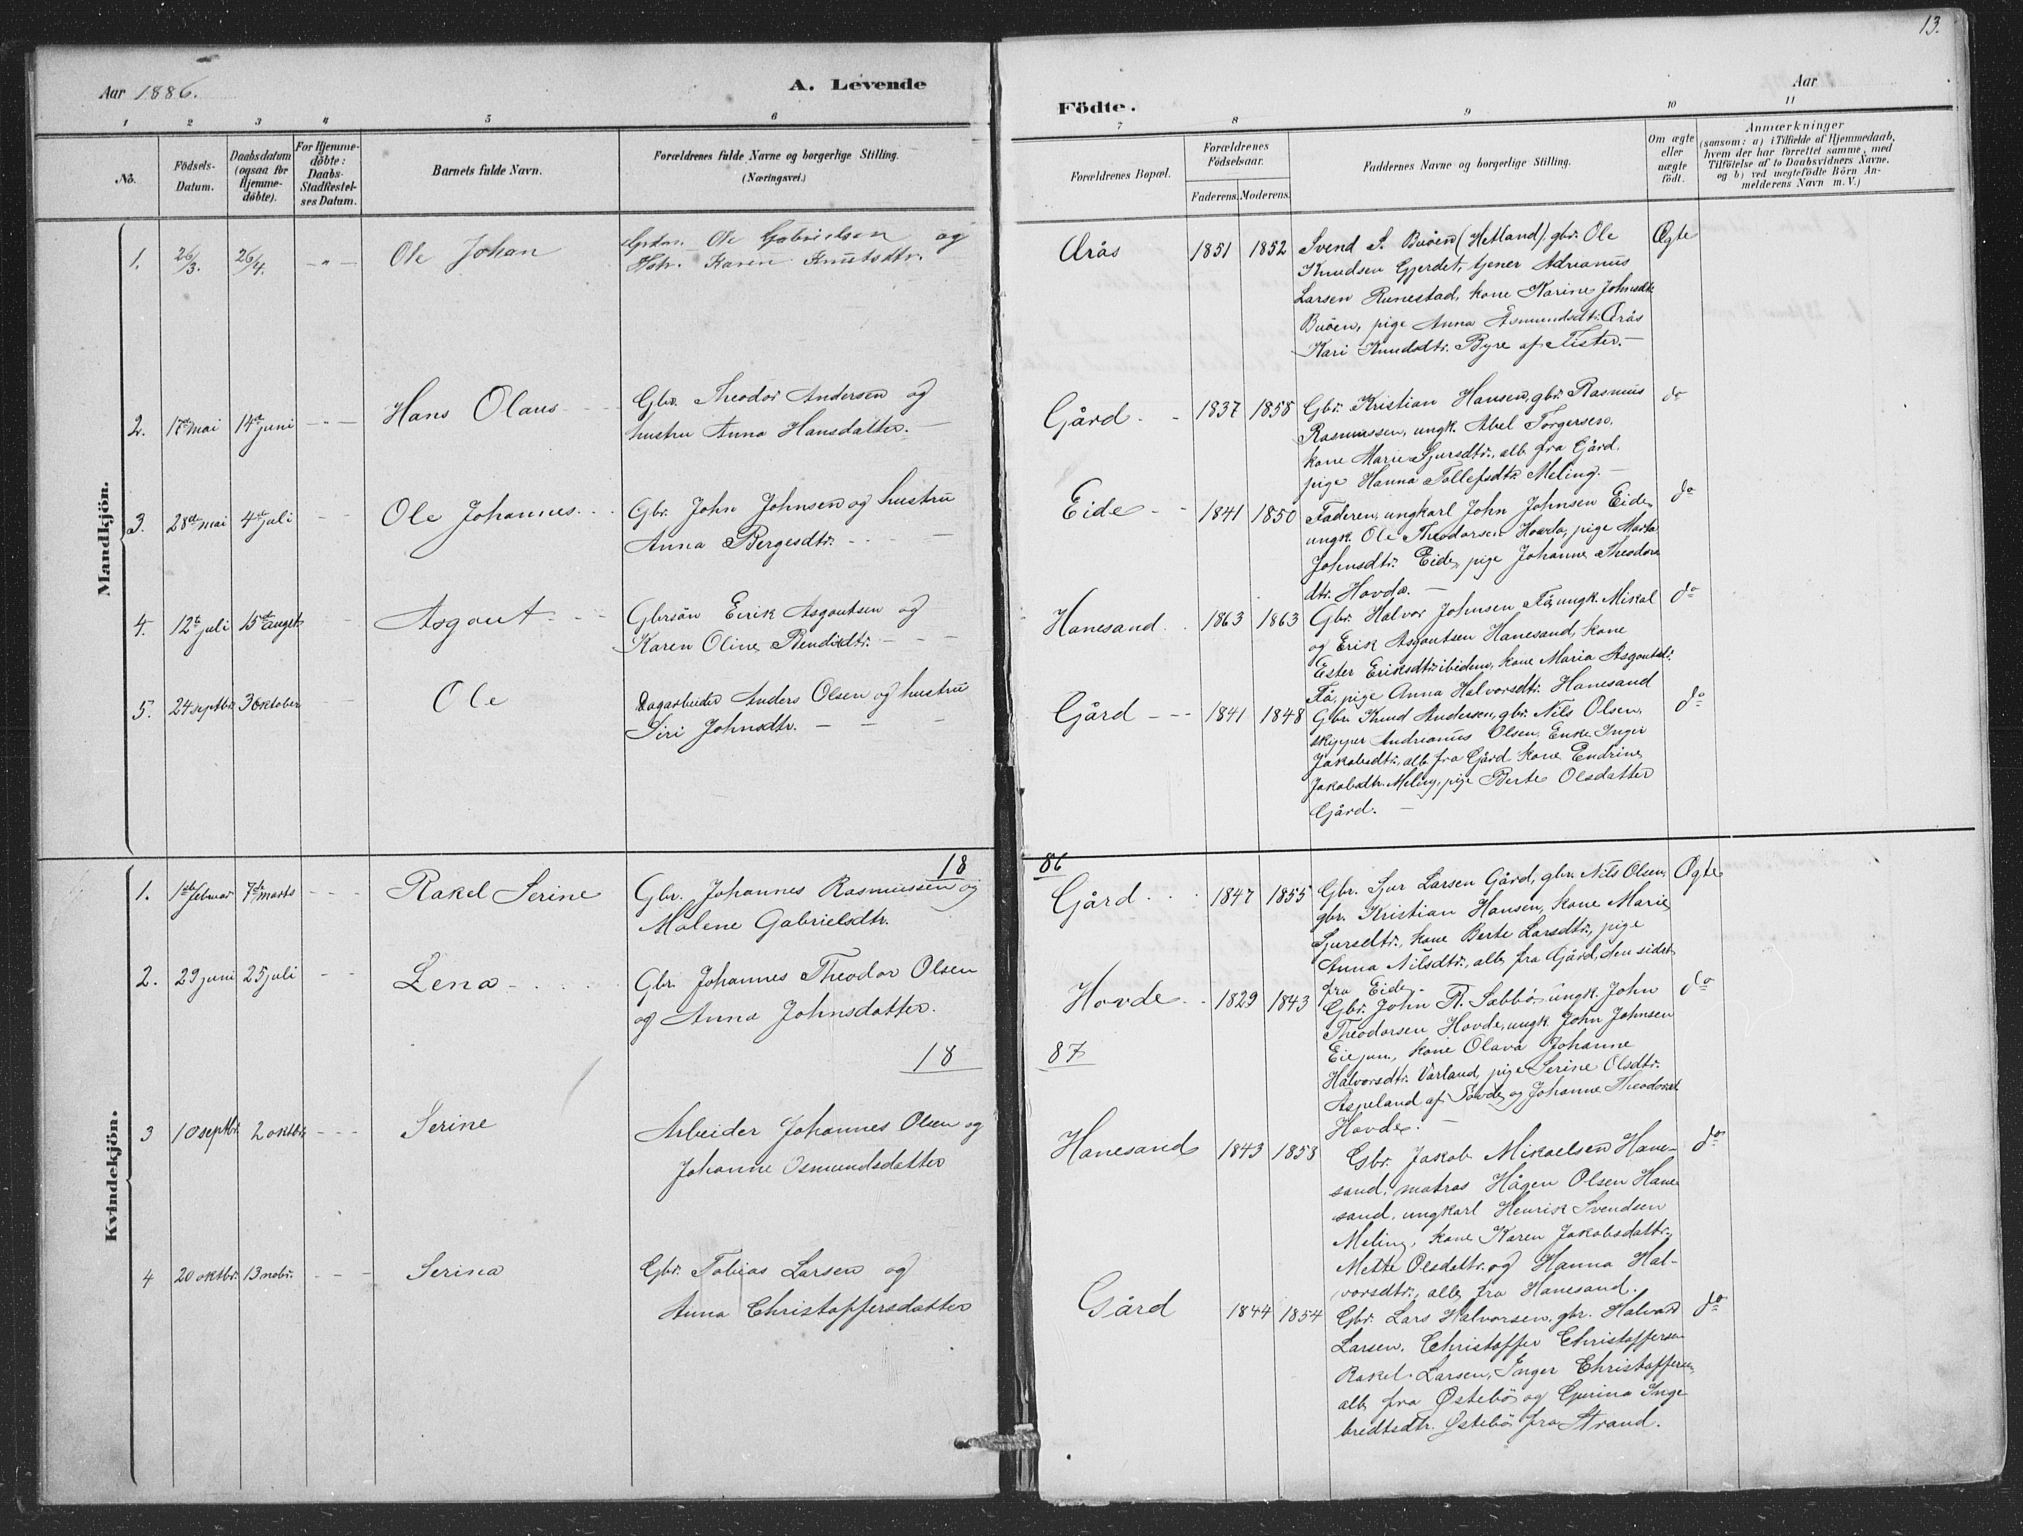 13.
Aar 1886.
A. Levende
Födte.
Aar
1 2 3 4 5 6 7 8 9 10 11
No.
Födsels-Datum.
Daabsdatum (ogsaa for Hjemmedöbte).
For Hjemmedöbte: Daabs-Stadfæstelses Datum.
Barnets fulde Navn.
Forældrenes fulde Navne og borgerlige Stilling. (Næringsvei.)
Forældrenes Bopæl.
Forældrenes Födselsaar.
Faderens. Moderens.
Faddernes Navne og borgerlige Stilling.
Om ægte eller uægte födt.
Anmærkninger
(saasom: a) i Tilfælde af Hjemmedaab, hvem der har forrettet samme, med Tilföielse af to Daabsvidners Navne, og b) ved uægtefödte Börn Anmelderens Navn m. V.)
Mandkjön.
1. 26/3. 26/4. - " - Ole Johan
Ole Gabrielsen og
Karen Knutsdtr.
Årås 1851 1852
Svend S. Buöen (Hetland), gbr. Ole
Knudsen Gjerdet, tjener Adrianus
Larsen Runestad, kone Karine Johnsdtr.
Buöen, pige Anna Åsmundsdtr. Årås
Kari Knudsdtr. Byre af Fister. —
Ægte
2. 17de mai 14de juni Hans Olaus
Gbr. Theodor Andersen og
hustru Anna Hansdatter. —
Gård 1837 1858
Gbr. Kristian Hansen, gbr. Rasmus
Rasmussen, ungk. Abel Torgersen,
kone Marie Sjursdtr., alb. fra Gård,
pige Hanna Tollefsdtr. Meling. —
do
3. 28de mai 4de juli Ole Johannes
Gbr. John Johnsen og hustru
Anna Bergesdtr.
Eide 1841 1850
Faderen, ungkarl John Johnsen Eide,
ungk. Ole Theodorsen Hovda, pige Marta
Johnsdtr. Eide, pige Johanne Theodors
dtr. Hovda. —
do
4. 12te juli 15de august Asgout
Gbrsön Eirik Asgoutsen og
Karen Oline Bendixdtr.
Hanesand 1863 1863
Gbr. Halvor Johnsen Få, ungk. Mikal
og Erik Asgoutsen Hanesand, kone
Ester Eriksdtr. ibidem, kone Maria Asgoutsd.
Få, pige Anna Halvorsdtr. Hanesand
do
5. 24 septbr 3 oktober Ole
Dagarbeider Anders Olsen og hustru
Siri Johnsdtr.
Gård 1841 1848
Gbr. Knud Andersen, gbr. Nils Olsen,
skipper Andrianus Olsen, Enke Inger
Jakobsdtr., alb. fra Gård kone Endrine
Jakobsdtr. Meling, pige Berte Olsdatter
Gård. —
do
18 86
Kvindekjön.
1. 1ste februar 7de marts Rakel Serine
Gbr. Johannes Rasmussen og
Malene Gabrielsdtr.
Gård 1847 1855
Gbr. Sjur Larsen Gård, gbr. Nils Olsen,
gbr. Kristian Hansen, kone Marie
Sjursdtr., kone Berte Larsdtr., pige
Anna Nilsdtr., alle fra Gård, den sidste
fra Eide. —
Ægte
2. 29 juni 25 juli Lena
Gbr. Johannes Theodor Olsen
og Anna Johnsdatter.
Hovde 1829 1843
Gbr. John R. Sabbö, ungk. John
Theodorsen Hovde, ungk. John Johnsen
Eie jun., kone Olava Johanne
Halvorsdtr. Varland, pige Serine Olsdtr.
Aspeland af Sovde og Johanne Theodorsd.
Hovde. —
do
18 87
3 10 septbr. 2 oktbr. Serine
Arbeider Johannes Olsen og
Johanne Osmundsdatter
Hanesand 1843 1853
Gbr. Jakob Mikaelsen Hane-
sand, matros Hågen Olsen Hane
sand, ungkarl Henrik Svendsen
Meling, kone Karen Jakobsdattr.,
Mette Olsdattr. og Hanna Hal-
vorsdtr., alle fra Hanesand.
do
4 20 oktbr. 13 nobr. Serina
Gbr. Tobias Larsen og
Anna Christoffersdatter
Gård 1844 1854
Gbr. Lars Halvorsen, gbr. Halvard
Larsen, Christoffer Christoffersen
Rakel Larsen, Inger Christoffersen,
alle fra Østebö og Gurina Inge
bredtsdtr. Østebö fra Strand.
do